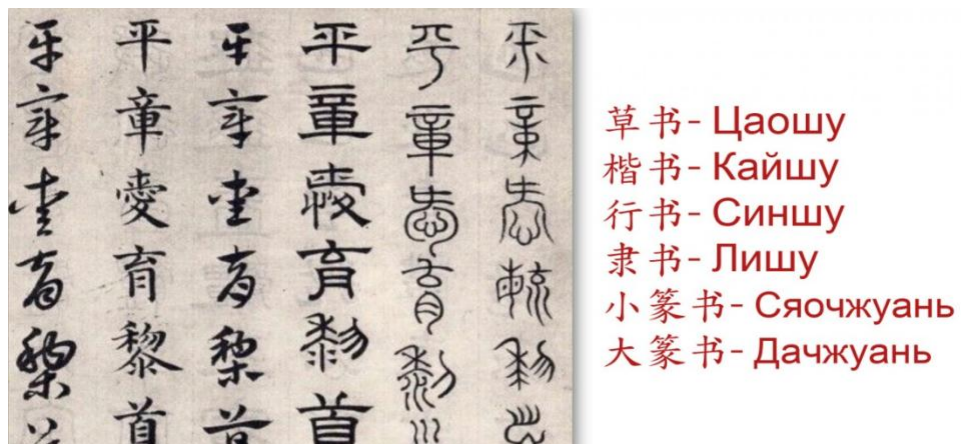 平章愛育黎
平章愛育黎
平章愛育黎首
平章愛育黎
平章愛育黎首
平章愛育黎
草书- Цаошу
楷书- Кайшу
行书- Синшу
隶书- Лишу
小篆书- Сяочжуань
大篆书- Дачжуань